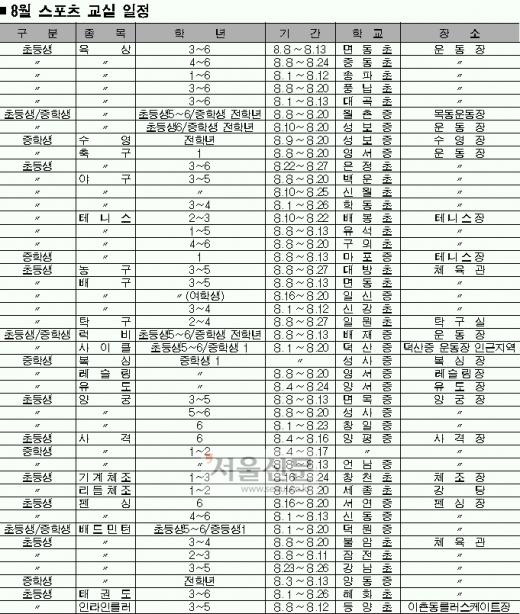 ■ 8월 스포츠 교실 일정
구 분 종 목 학 년 기 간 학 교 장 소
초등생 육 상 3~6 8.8~8.13 면 동 초 운 동 장
〃 〃 4~6 8.8~8.24 중 동 초 〃
〃 〃 1~6 8.1~8.12 송 파 초 〃
〃 〃 3~6 8.8~8.20 풍 납 초 〃
〃 〃 3~6 8.1~8.13 대 곡 초 〃
초등생/중학생 〃 초등생5~6/중학생 전학년 8.8~8.20 월 촌 중 목동운동장
〃 〃 초등생6/중학생 전학년 8.10~8.20 성 보 중 운 동 장
중학생 수 영 전학년 8.9~8.20 성 보 중 수 영 장
〃 축 구 1 8.8~8.20 영 서 중 운 동 장
초등생 〃 3~6 8.22~8.27 은 정 초 〃
〃 야 구 3~5 8.8~8.20 백 운 초 〃
〃 〃 〃 8.10~8.25 신 월 초 〃
〃 〃 3~4 8.1~8.26 학 동 초 〃
〃 테 니 스 2~3 8.10~8.22 배 봉 초 테니스장
〃 〃 1~5 8.8~8.13 유 석 초 〃
〃 〃 4~6 8.8~8.20 구 의 초 〃
중학생 〃 1 8.8~8.13 마 포 중 테니스장
초등생 농 구 3~5 8.8~8.27 대 방 초 체 육 관
〃 배 구 3~5 8.8~8.13 면 동 초 〃
〃 〃 〃(여학생) 8.16~8.20 일 신 중 〃
〃 〃 3~4 8.1~8.12 신 강 초 〃
〃 탁 구 2~4 8.8~8.27 일 원 초 탁 구 실
초등생/중학생 럭 비 초등생5~6/중학생 전학년 8.8~8.13 배 재 중 운 동 장
〃 사 이 클 초등생5~6/중학생 1 8.1~8.20 덕 산 중 덕산중 운동장 인근지역
중학생 복 싱 중학생 1 〃 성 사 중 복 싱 장
〃 레 슬 링 〃 8.8~8.20 영 서 중 레슬링장
〃 유 도 〃 8.4~8.24 양 서 중 유 도 장
초등생 양 궁 3~5 8.8~8.13 면 목 중 양 궁 장
〃 〃 5~6 8.8~8.20 성 사 중 〃
〃 〃 6 8.1~8.23 창 일 중 〃
초등생 사 격 6 8.4~8.16 양 평 중 사 격 장
중학생 〃 1~2 8.4~8.17 〃 〃
〃 〃 〃 8.8~8.13 언 남 중 〃
초등생 기계체조 1~3 8.16~8.24 창 천 초 체 조 장
〃 리듬체조 1~2 8.16~8.20 세 종 초 강 당
초등생 펜 싱 6 8.16~8.20 서 연 중 펜 싱 장
〃 〃 4~6 8.1~8.13 신 동 중 〃
초등생/중학생 배드민턴 초등생5~6/중등생1 8.1~8.20 덕 원 중 〃
초등생 〃 3~4 8.8~8.20 불 암 초 체 육 관
〃 〃 2~3 8.8~8.11 잠 전 초 〃
〃 〃 3~5 8.23~8.26 강 남 초 〃
중학생 〃 전학년 8.3~8.13 양 동 중 〃
초등생 태 권 도 3~6 8.1~8.26 혜 화 초 〃
〃 인라인롤러 3~5 8.8~8.12 등 양 초 이촌동롤러스케이트장
서울신문